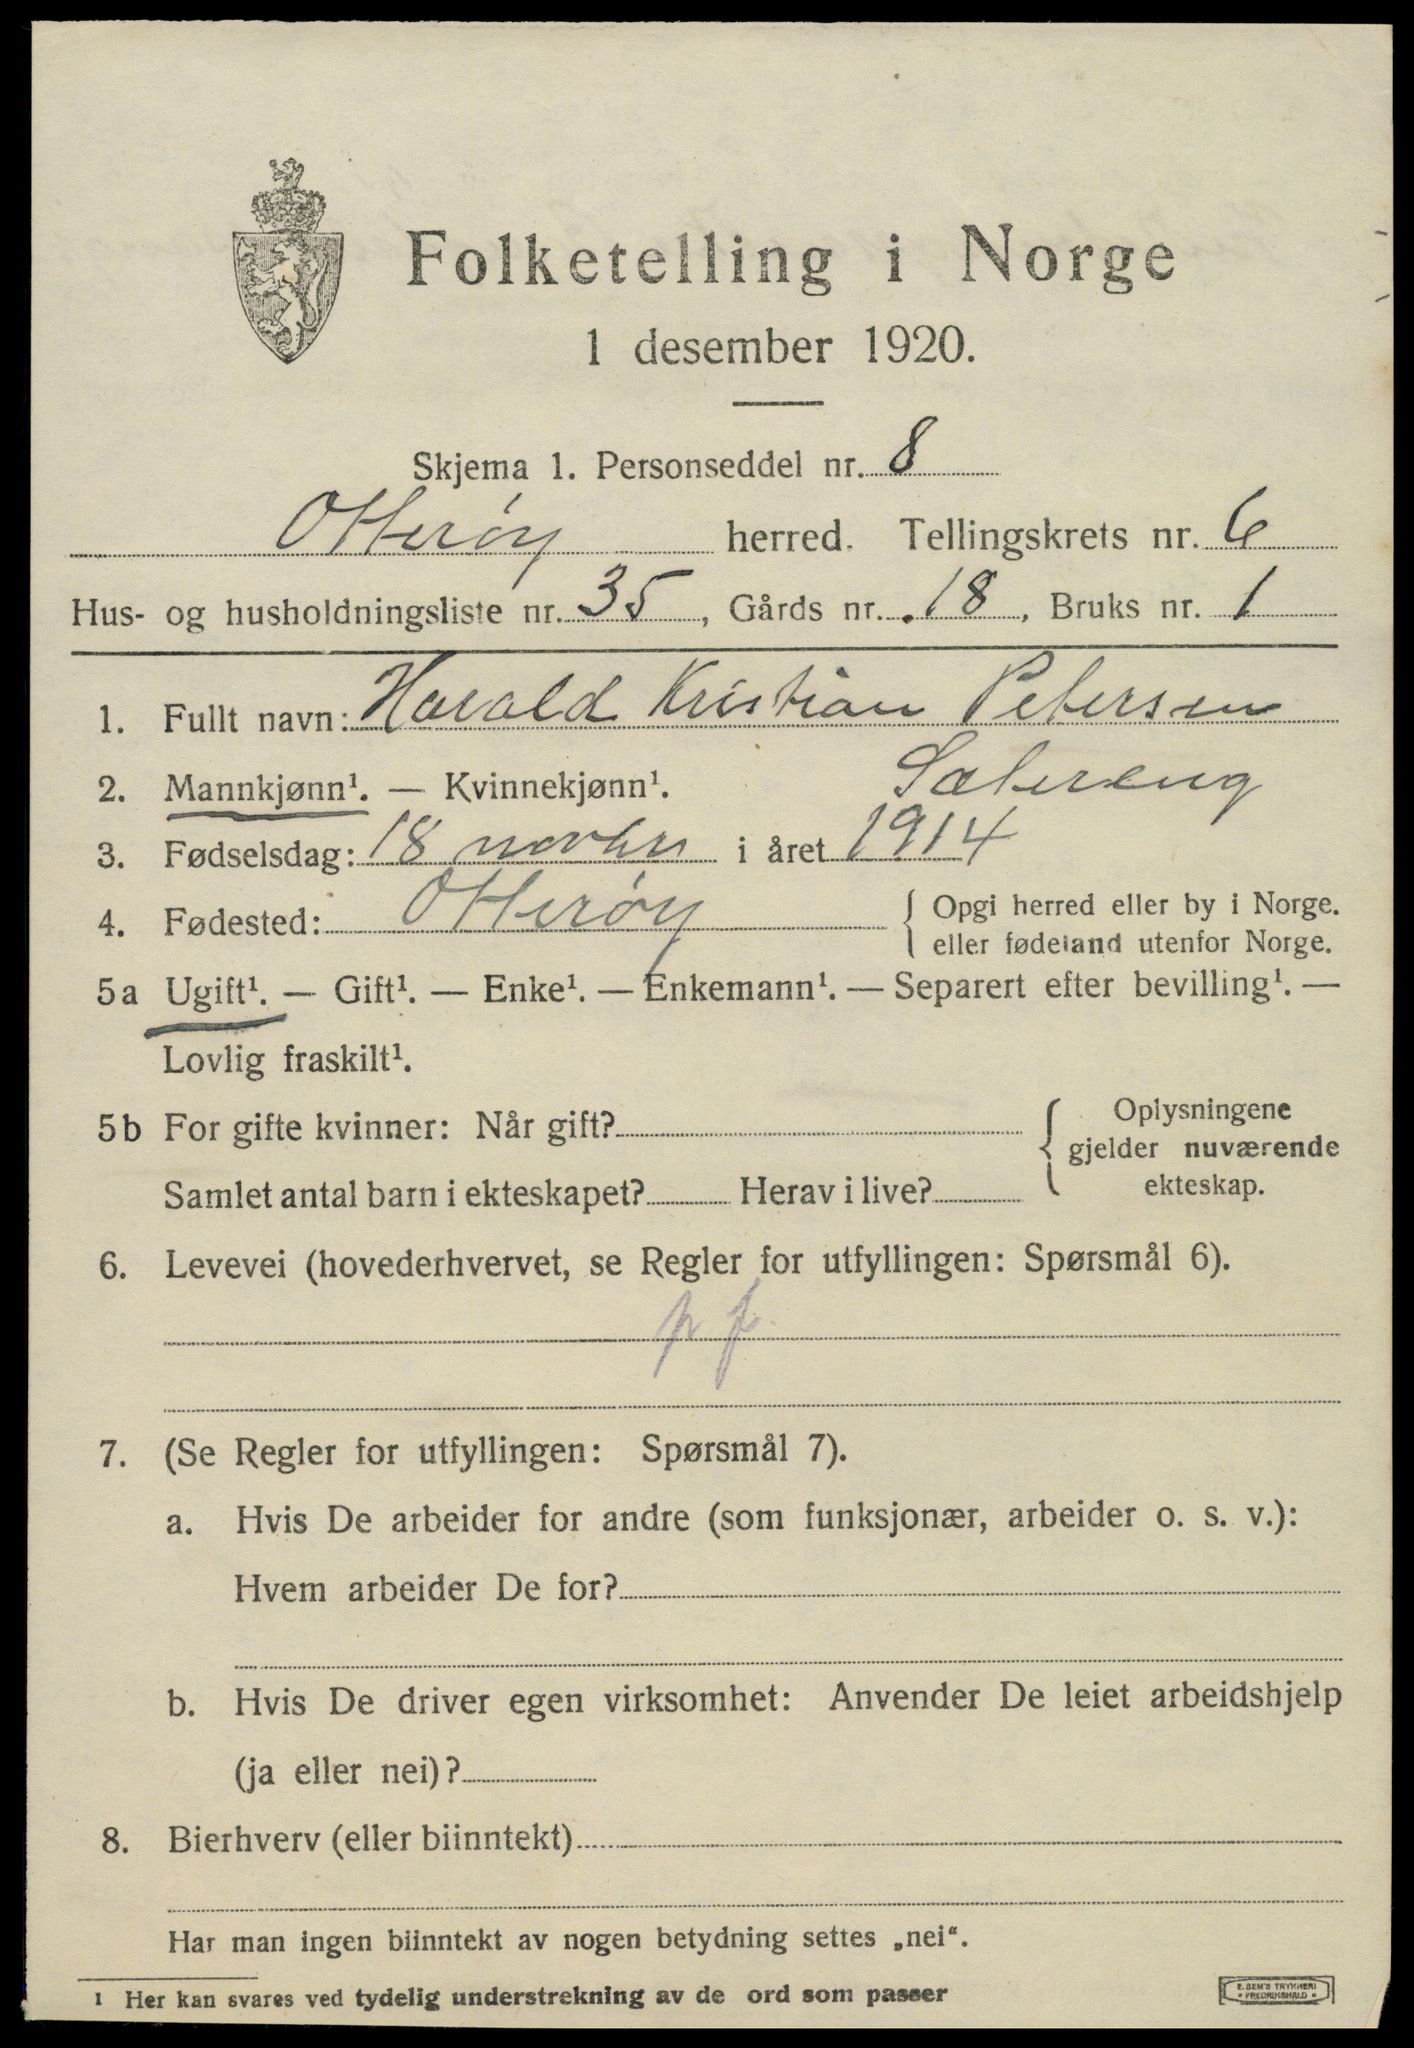 Folketelling i Norge
1 desember 1920.
Skjema 1. Personseddel nr. 8
Otterøy herred. Tellingskrets nr. 6
Hus- og husholdningsliste nr. 35, Gårds nr. 18, Bruks nr. 1
1. Fullt navn: Harald Kristian Petersen
Sætereng
2. Mannkjønn¹. — Kvinnekjønn¹.
3. Fødselsdag: 18 novbr i året 1914
4. Fødested: Otterøy { Opgi herred eller by i Norge.
eller fødeland utenfor Norge.
5a Ugift¹. — Gift¹. — Enke¹. — Enkemann¹. — Separert efter bevilling¹. —
Lovlig fraskilt¹.
5b For gifte kvinner: Når gift?
Samlet antal barn i ekteskapet? Herav i live?
{ Oplysningene
gjelder nuværende
ekteskap.
6. Levevei (hovederhvervet, se Regler for utfyllingen: Spørsmål 6).
p f
7. (Se Regler for utfyllingen: Spørsmål 7).
a. Hvis De arbeider for andre (som funksjonær, arbeider o. s. v.):
Hvem arbeider De for?
b. Hvis De driver egen virksomhet: Anvender De leiet arbeidshjelp
(ja eller nei)?
8. Bierhverv (eller biinntekt)
Har man ingen biinntekt av nogen betydning settes „nei“.
1 Her kan svares ved tydelig understrekning av de ord som passer
E. SEM'S TRYKKERI
• FREDRIKSHALD •